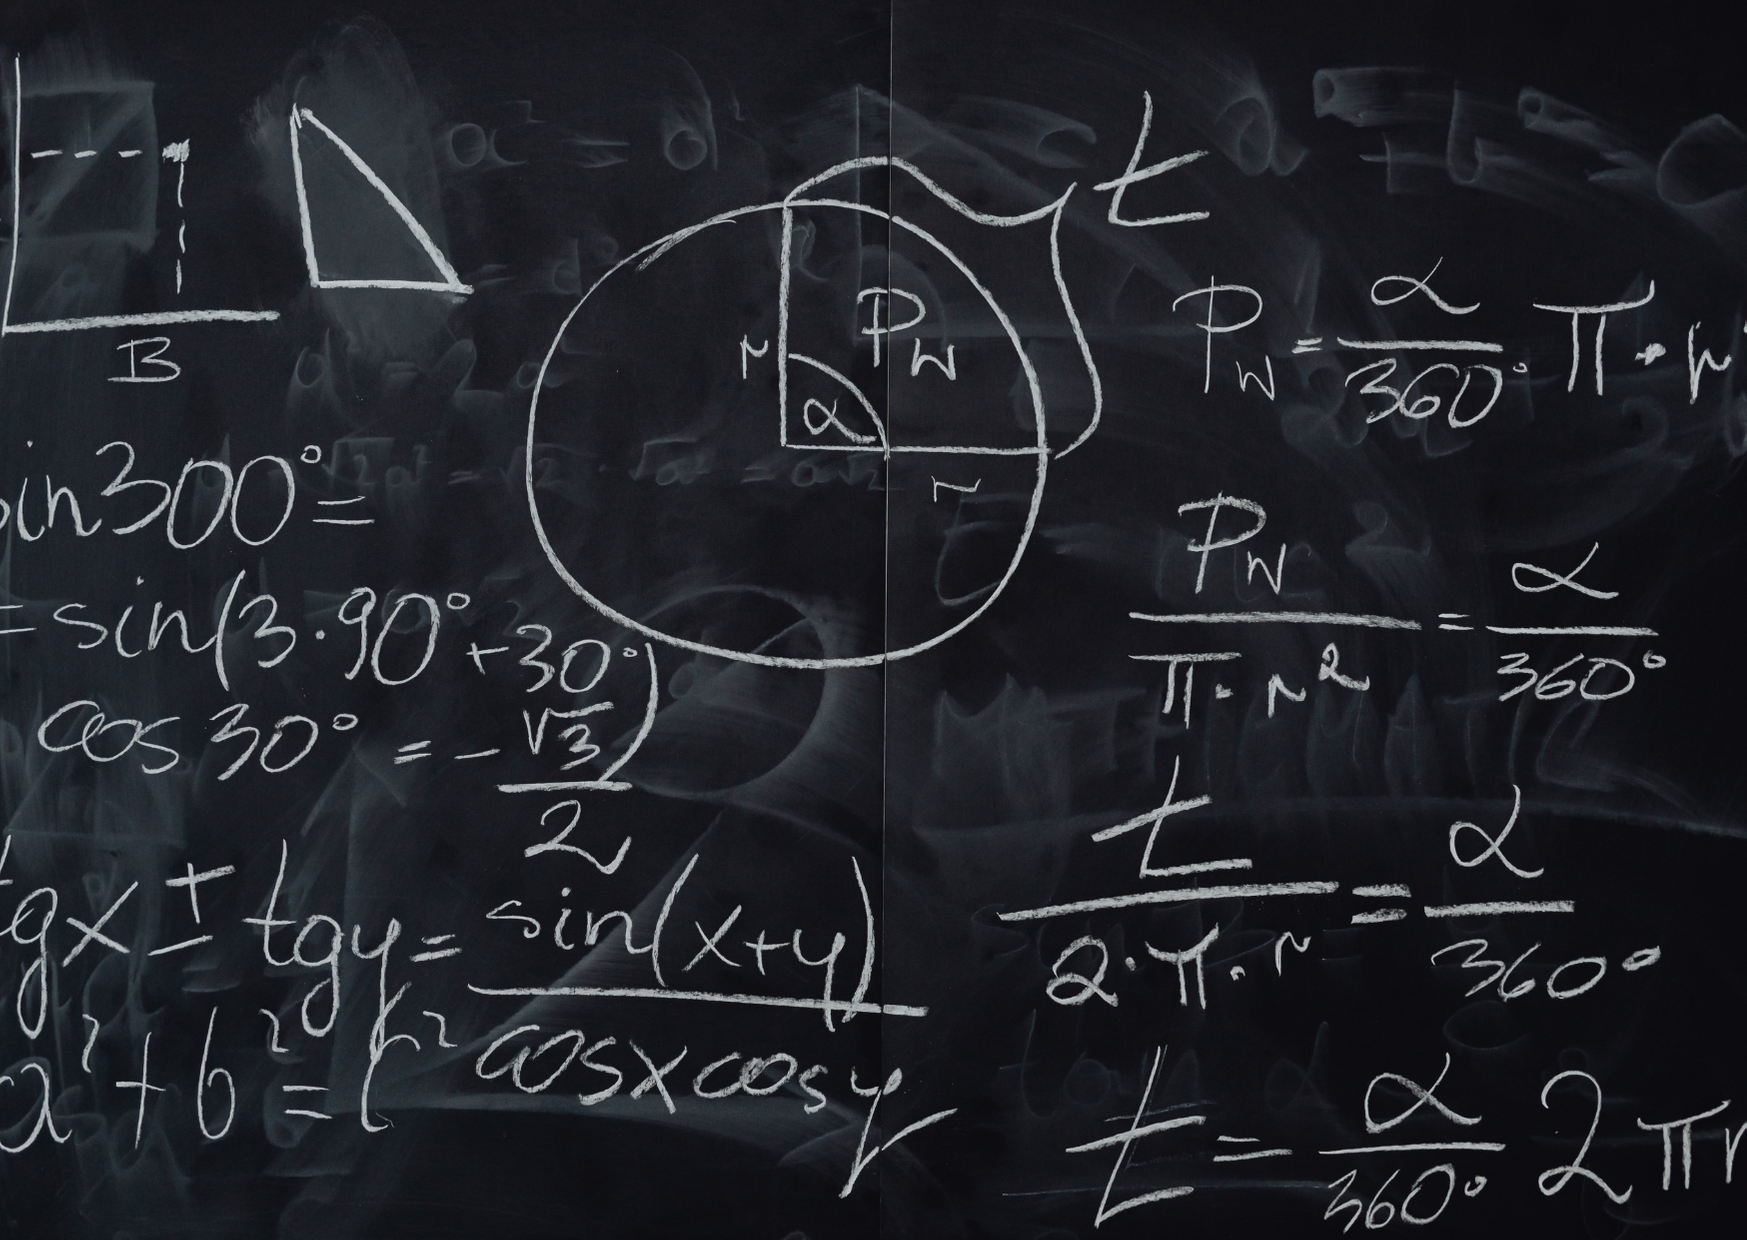 B
sin300°=
=sin(3·90°+30°)
cos 30° = -√3/2
tgx ± tgy = sin(x+y)/cosxcosy
a²+b²=c²
t
r
P_W
α
r
P_W = α/360° π·r
P_W/π·r² = α/360°
t/2·π·r = α/360°
t = α/360° 2πr